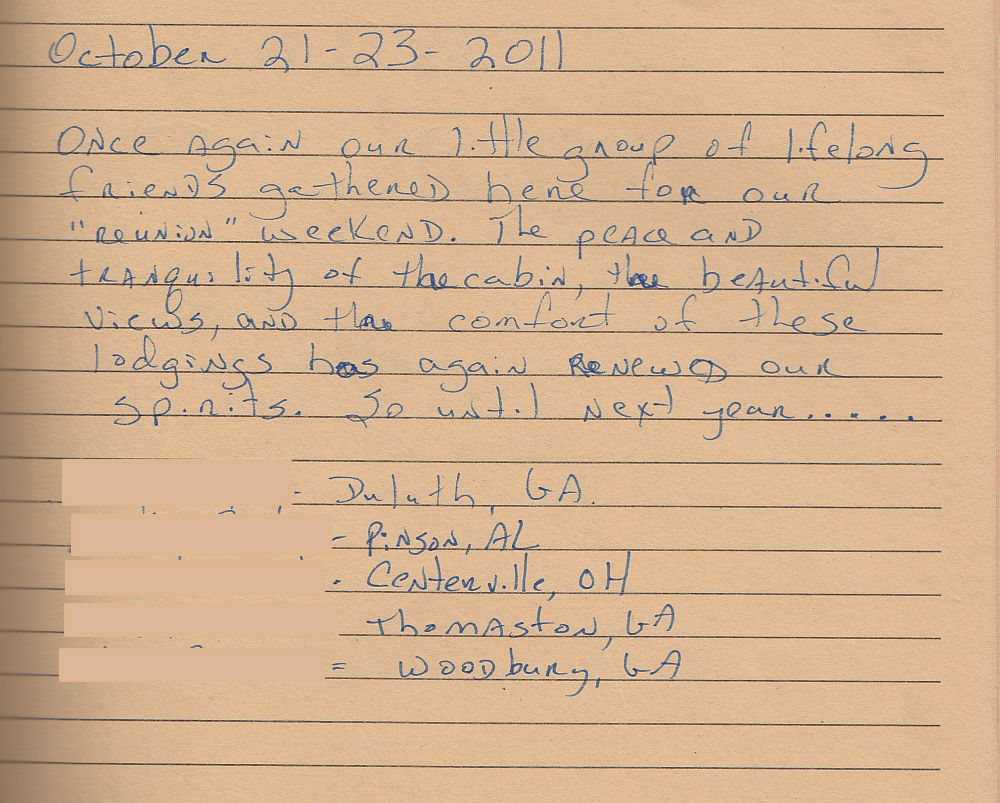 October 21-23-2011
Once again our little group of lifelong
friends gathered here for our
"reunion" weekend. The peace and
tranquility of the cabin, the beautiful
views, and the comfort of these
lodgings has again renewed our
spirits. So until next year.....
- Duluth, GA.
- Pinson, AL
- Centerville, OH
Thomaston, GA
= Woodbury, GA